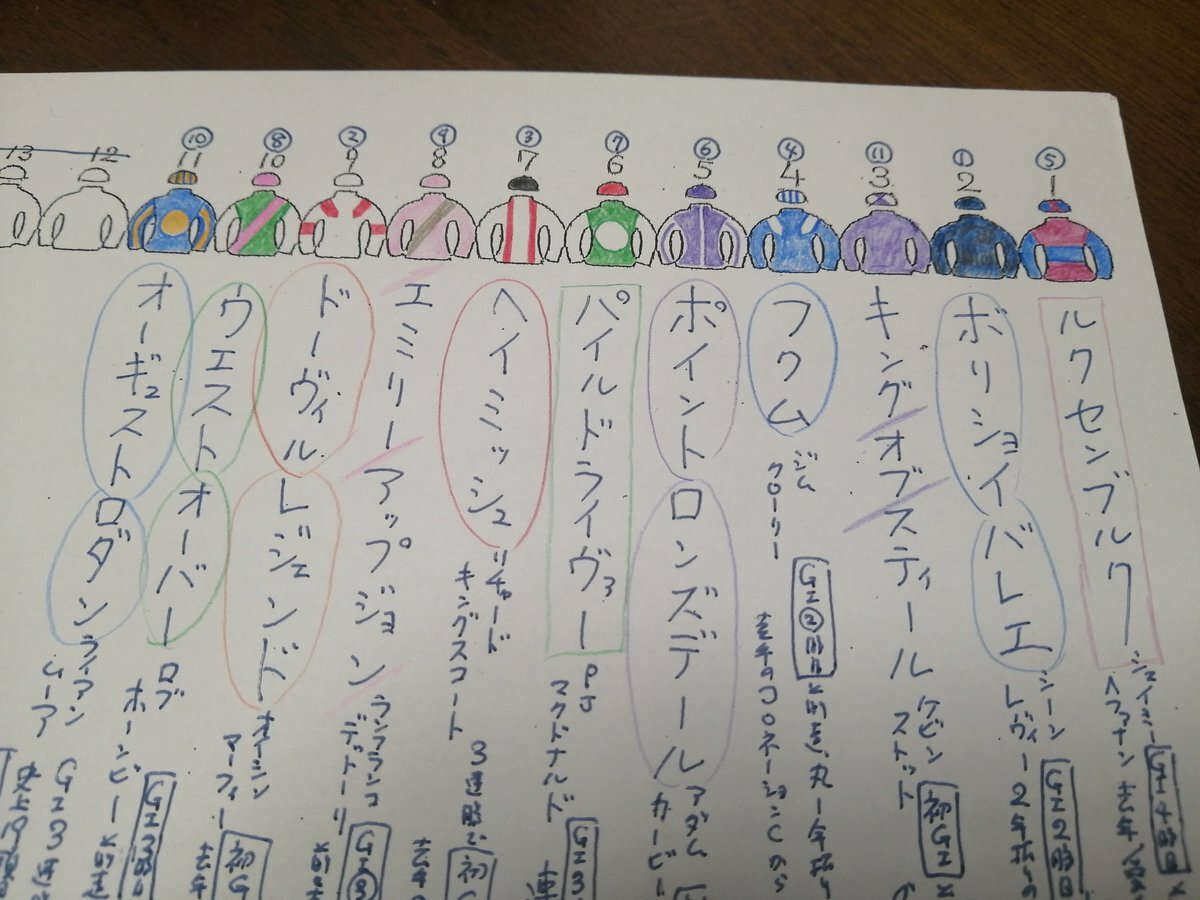 ⑤ ① ⑪ ④ ⑥ ⑦ ③ ⑨ ② ⑧ ⑩
1 2 3 4 5 6 7 8 9 10 11 12 13
ルクセンブルク
ジェイミー
ヘファナン
ボリショイバレエ
シーン
レヴィー
GⅠ2回目
キングオブスティール
ケビン
ストット
初GⅠ
フクム
ジム
クローリー
GⅠ②回目
去年のコロネーションCから
ポイントロンズデール
アダム
カービー
パイルドライヴァー
PJ
マクドナルド
GⅠ3
ヘイミッシュ
リチャード
キングスコート
3連勝
初
エミリーアップジョン
ランフランコ
デットーリ
ドーヴィルレジェンド
オイシン
マーフィー
初G
ウエストオーバー
ロブ
ホーンビー
GⅠ3回目
オーギュストロダン
ライアン
ムーア
GⅠ3